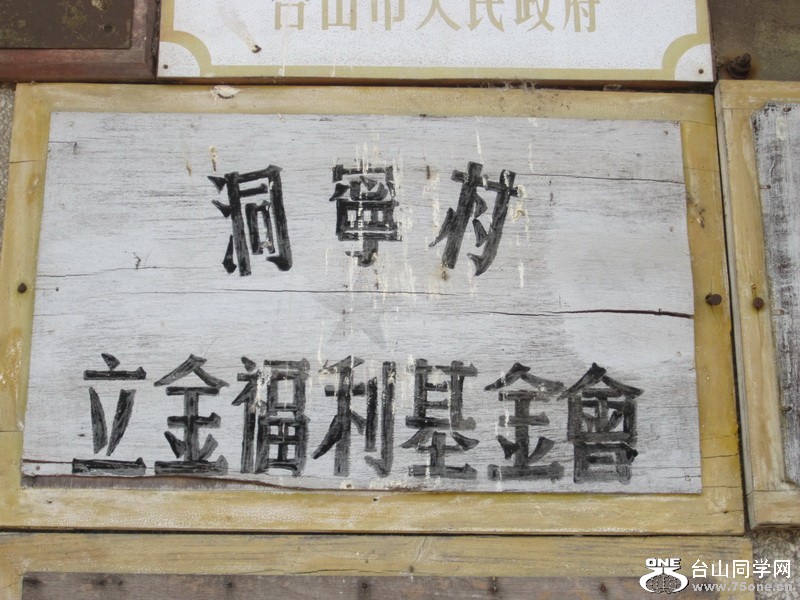 台山市人民政府
洞寧村
立金福利基金會
ONE
75
台山同学网
www.75one.cn